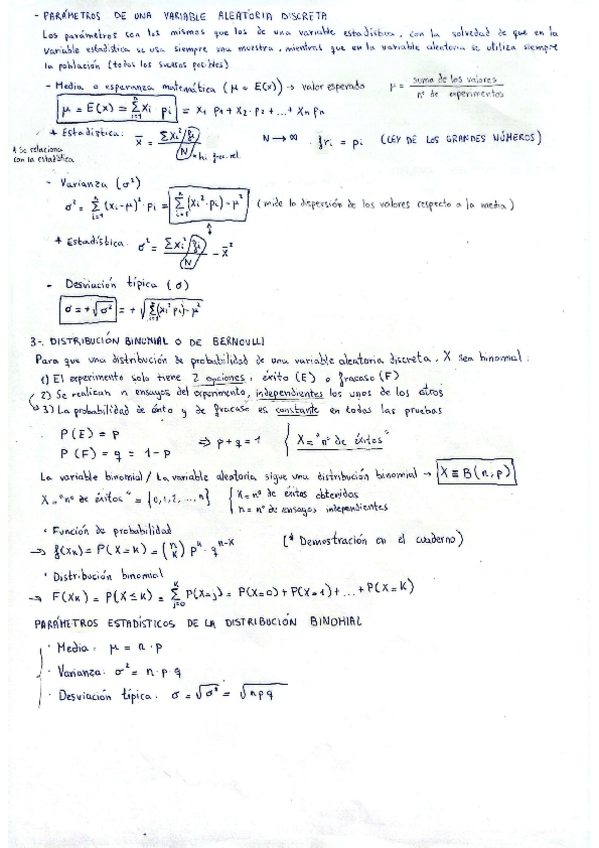 - PARÁMETROS DE UNA VARIABLE ALEATORIA DISCRETA
Los parámetros son los mismos que los de una variable estadística, con la salvedad de que en la
variable estadística se usa siempre una muestra, mientras que en la variable aleatoria se utiliza siempre
la población (todos los sucesos posibles)
- Media o esperanza matemática (μ = E(x)) → valor esperado μ = suma de los valores / nº de experimentos
μ = E(x) = Σ xi pi = x1 p1 + x2 · p2 + ... + xn pn
* Estadística: x̄ = Σxi² fi / N = hi fra. rel. N → ∞ fri = pi (LEY DE LOS GRANDES NÚMEROS)
* Se relaciona
con la estadística
- Varianza (σ²)
σ² = Σ (xi - μ)² · pi = Σ (xi² · pi) - μ² (mide la dispersión de los valores respecto a la media)
* Estadística. σ² = Σxi² fi / N - x̄²
- Desviación típica (σ)
σ = + √σ² = + √Σ(xi² pi) - μ²
3-. DISTRIBUCIÓN BINOMIAL O DE BERNOULLI
Para que una distribución de probabilidad de una variable aleatoria discreta, X sea binomial:
1) El experimento solo tiene 2 opciones, éxito (E) o fracaso (F)
2) Se realizan n ensayos del experimento, independientes los unos de los otros
3) La probabilidad de éxito y de fracaso es constante en todas las pruebas
P(E) = p
P(F) = q = 1 - p ⇒ p + q = 1 { X = "nº de éxitos"
La variable binomial / La variable aleatoria sigue una distribución binomial → X ≡ B(n, p)
X = "nº de éxitos" = {0, 1, 2, ..., n} { X = nº de éxitos obtenidos
n = nº de ensayos independientes
· Función de probabilidad
→ f(xk) = P(X = k) = (n k) p^k · q^n-k [* Demostración en el cuaderno)
· Distribución binomial
→ F(xk) = P(X ≤ k) = Σ P(X = j) = P(X=0) + P(X=1) + ... + P(X=k)
PARÁMETROS ESTADÍSTICOS DE LA DISTRIBUCIÓN BINOMIAL
· Media: μ = n · p
· Varianza: σ² = n · p · q
· Desviación típica. σ = √σ² = √npq